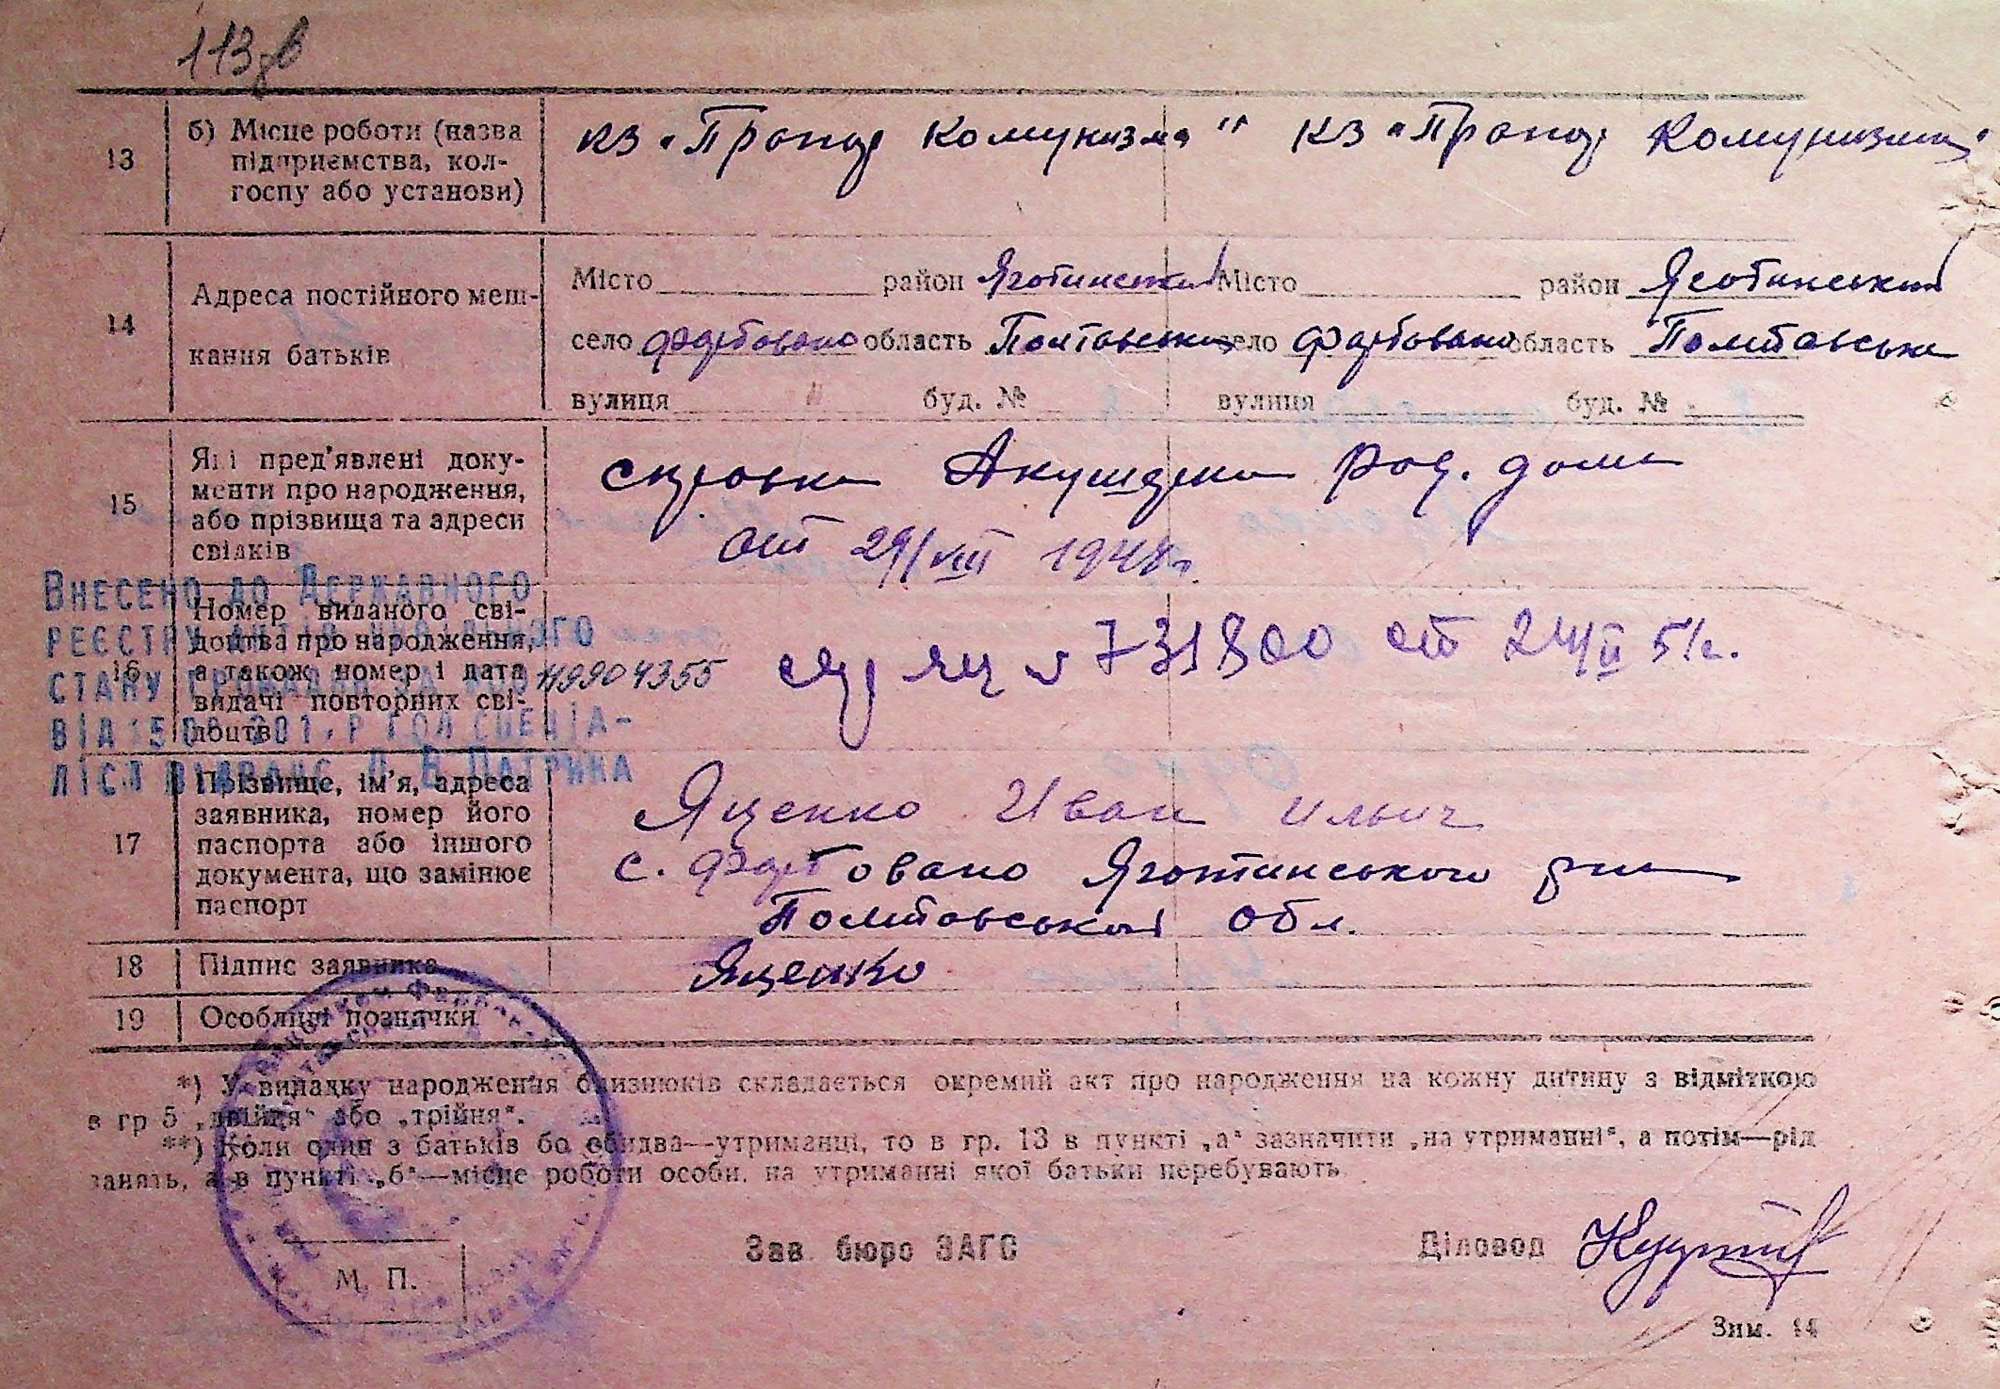 113
13 б) Місце роботи (назва підприємства, колгоспу або установи)
кз „Прапор Комунизма" кз „Прапор Комунизма"
14 Адреса постійного мешкання батьків
Місто район Яготинський Місто район Яготинський
село Фарбовано область Полтавська село Фарбовано область Полтавська
вулиця буд. № вулиця буд. №
15 Які пред'явлені документи про народження, або прізвища та адреси свідків
справка Акушерка род. дома
от 29/VIII 194 г.
16 Номер виданого свідоцтва про народження, а також номер і дата видачі повторних свідоцтв
ЯЦ № 731800 от 24/II 51г.
Внесено до Державного
реєстру актів цивільного
стану громадян за №0 119904355
від 15 201 р гол спеціа-
ліст Патрика
17 Прізвище, ім'я, адреса заявника, номер його паспорта або іншого документа, що замінює паспорт
Яценко Иван Ильич
с. Фарбовано Яготинського р-на
Полтавської обл.
18 Підпис заявника Яценко
19 Особливі позначки
*) У випадку народження близнюків складається окремий акт про народження на кожну дитину з відміткою
в гр 5 „двійня" або „трійня".
**) Коли один з батьків бо обидва—утриманці, то в гр. 13 в пункті „а" зазначити „на утриманні", а потім—рід
занять, а в пункті „б"—місце роботи особи, на утриманні якої батьки перебувають
М. П. Зав. бюро ЗАГС Діловод
Зим. 14